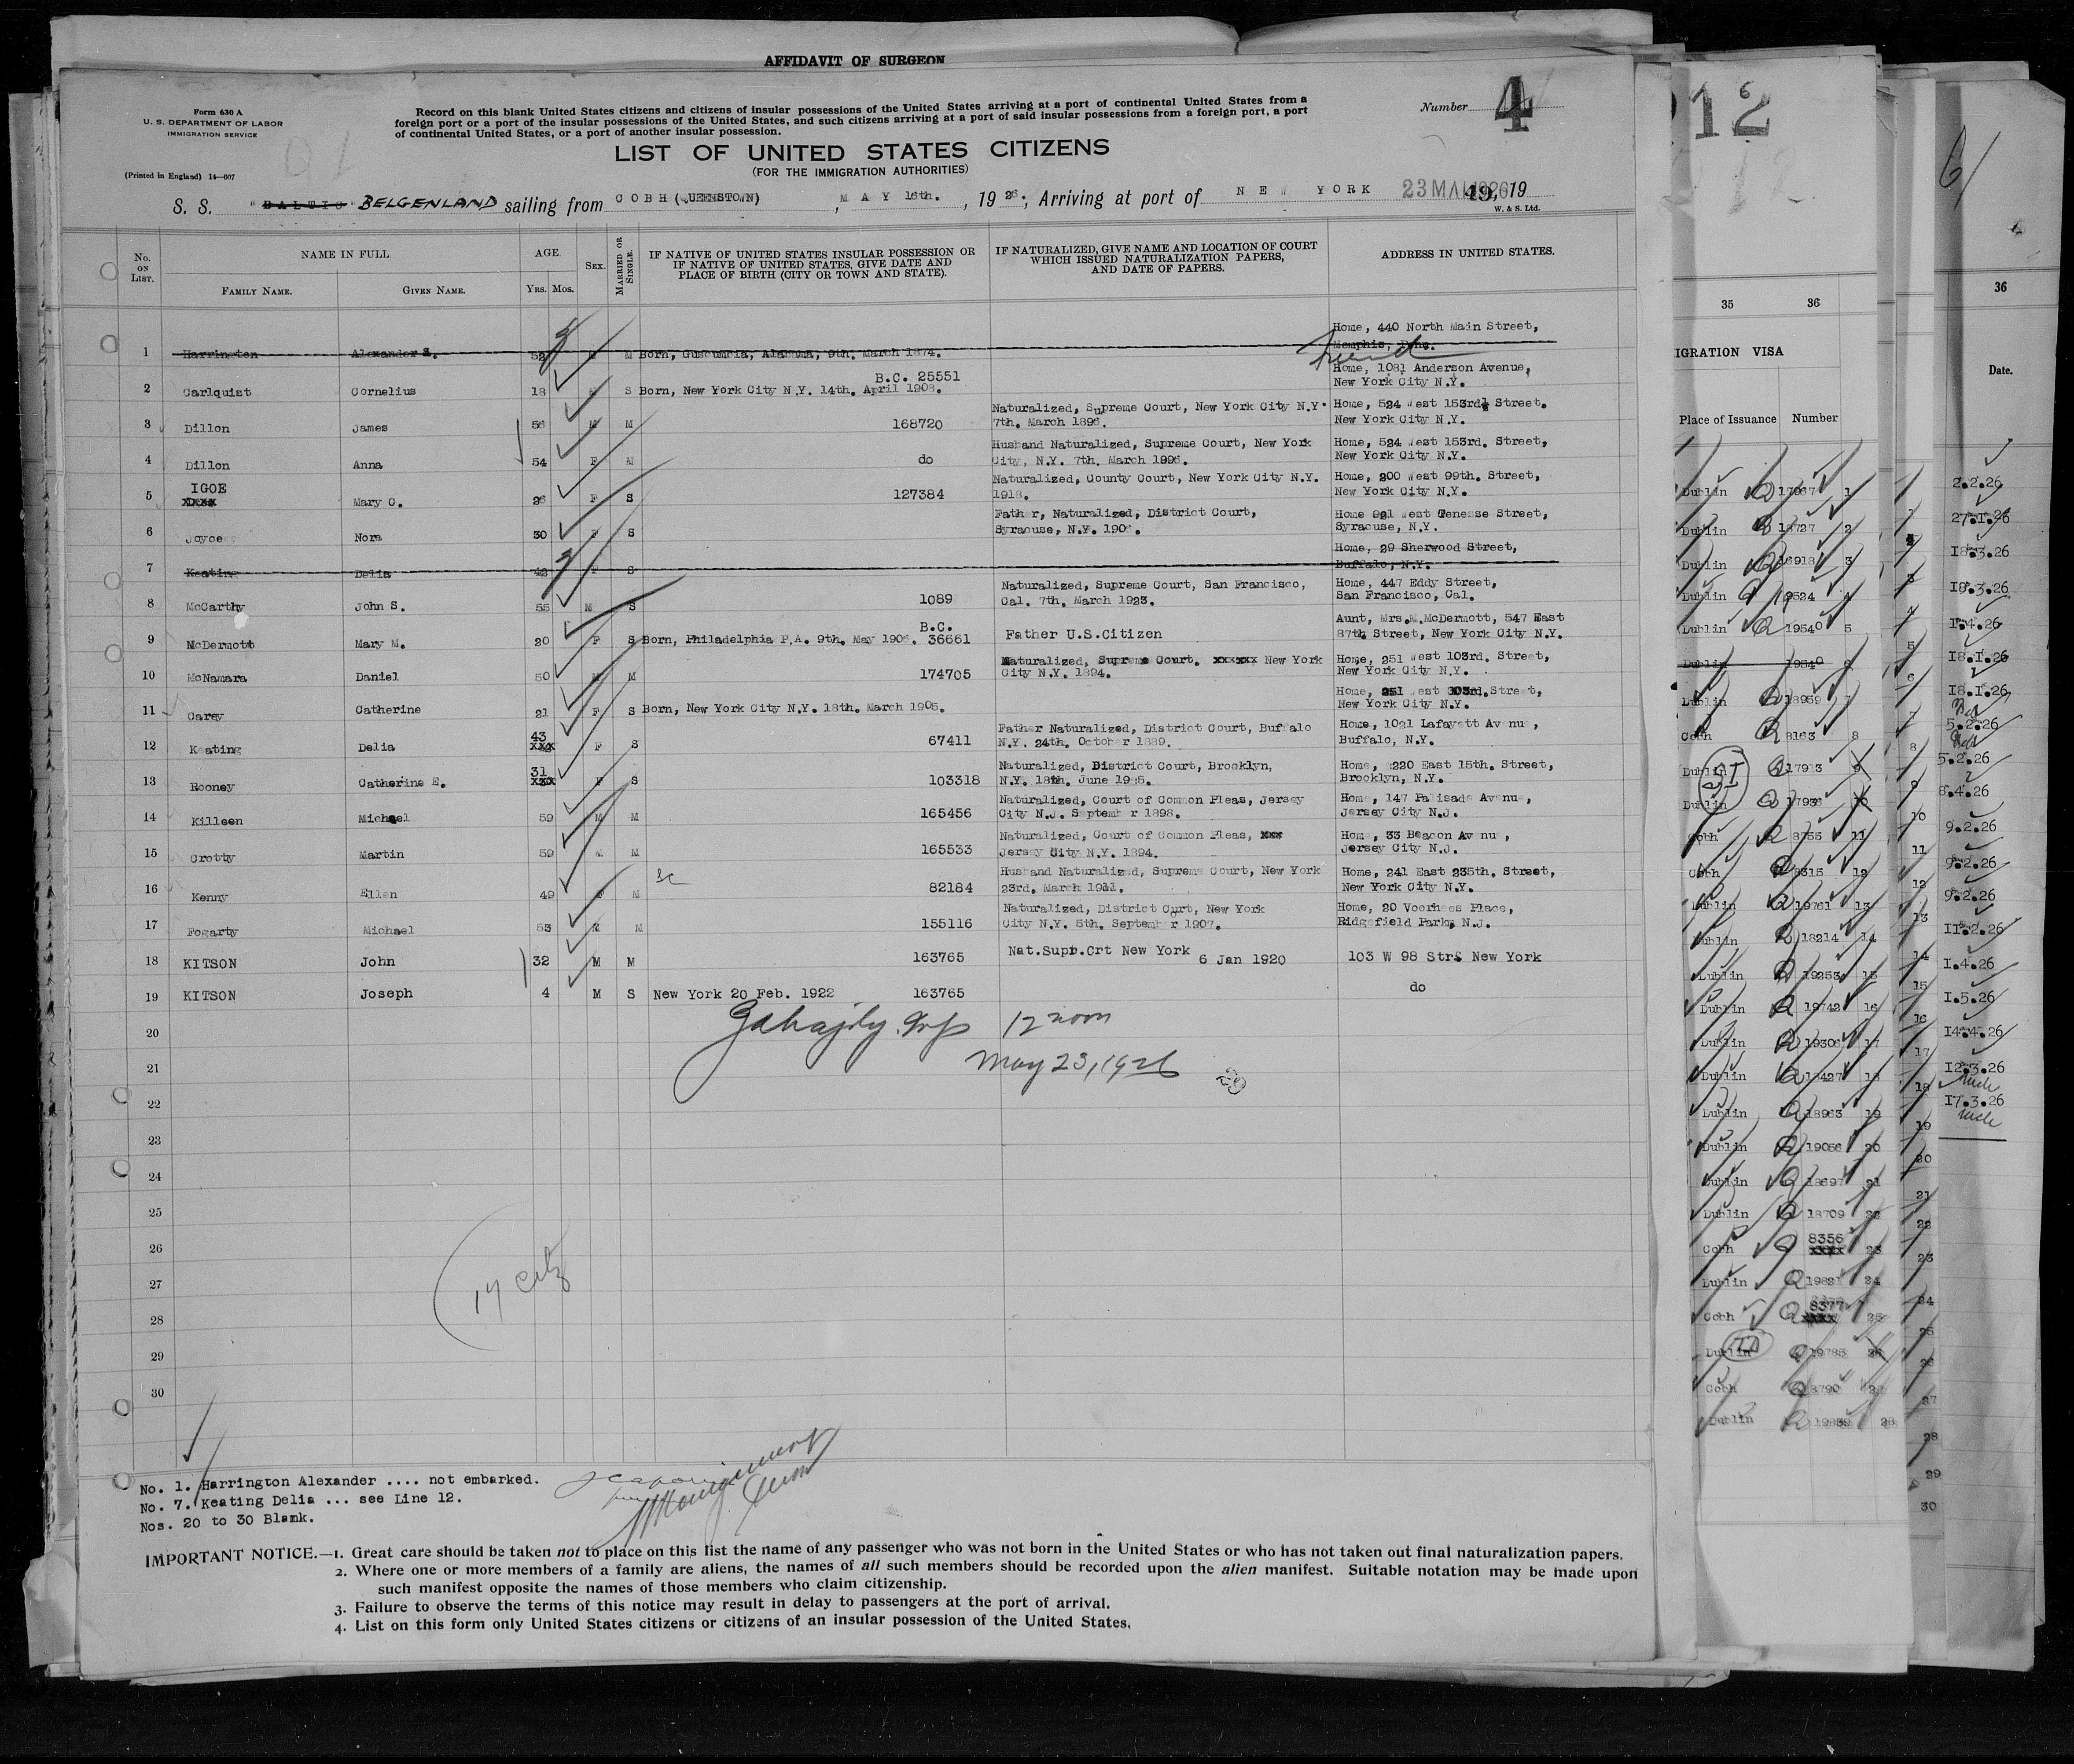 AFFIDAVIT OF SURGEON
Form 630 A
U. S. DEPARTMENT OF LABOR
IMMIGRATION SERVICE
(Printed in England) 14—607
Record on this blank United States citizens and citizens of insular possessions of the United States arriving at a port of continental United States from a
foreign port or a port of the insular possessions of the United States, and such citizens arriving at a port of said insular possessions from a foreign port, a port
of continental United States, or a port of another insular possession.
Number 4
LIST OF UNITED STATES CITIZENS
(FOR THE IMMIGRATION AUTHORITIES)
S. S. "BALTIC" BELGENLAND sailing from COBH (QUEENSTOWN), MAY 16th., 1926; Arriving at port of NEW YORK 23 MAY 1926, 19
W. & S. Ltd.
No. ON LIST. NAME IN FULL FAMILY NAME. GIVEN NAME. AGE. YRS. MOS. SEX. MARRIED OR SINGLE.
IF NATIVE OF UNITED STATES INSULAR POSSESSION OR
IF NATIVE OF UNITED STATES, GIVE DATE AND
PLACE OF BIRTH (CITY OR TOWN AND STATE).
IF NATURALIZED, GIVE NAME AND LOCATION OF COURT
WHICH ISSUED NATURALIZATION PAPERS,
AND DATE OF PAPERS.
ADDRESS IN UNITED STATES.
Home, 440 North Main Street,
1 Harrington Alexander S. 52 M M Born, Guscumbia, Alabama, 9th. March 1874. Memphis,
B.C. 25551 Home, 1081 Anderson Avenue,
2 Carlquist Cornelius 18 M S Born, New York City N.Y. 14th. April 1908. New York City N.Y.
Naturalized, Supreme Court, New York City N.Y. Home, 524 West 153rd. Street.
3 Dillon James 56 M M 168720 7th. March 1896. New York City N.Y.
Husband Naturalized, Supreme Court, New York Home, 524 West 153rd. Street,
4 Dillon Anna 54 F M do City, N.Y. 7th. March 1996. New York City N.Y.
IGOE Naturalized, County Court, New York City N.Y. Home, 200 West 99th. Street,
5 xxxx Mary C. 26 F S 127384 1918. New York City N.Y.
Father, Naturalized, District Court, Home 921 West Genesse Street,
6 Joyce Nora 30 F S Syracuse, N.Y. 190 . Syracuse, N.Y.
Home, 29 Sherwood Street,
7 Keating Delia 42 F S Buffalo, N.Y.
Naturalized, Supreme Court, San Francisco, Home, 447 Eddy Street,
8 McCarthy John S. 55 M S 1089 Cal. 7th. March 1923. San Francisco, Cal.
B.C. Aunt, Mrs.M.McDermott, 547 East
9 McDermott Mary M. 20 F S Born, Philadelphia P.A. 9th. May 1906. 36661 Father U.S.Citizen 87th Street, New York City N.Y.
Naturalized, Supreme Court. xxxxxx New York Home, 251 West 103rd. Street,
10 McNamara Daniel 50 M M 174705 City N.Y. 1894. New York City N.Y.
Home, 251 West 103rd. Street,
11 Carey Catherine 21 F S Born, New York City N.Y. 18th. March 1905. New York City N.Y.
43 Father Naturalized, District Court, Buffalo Home, 1021 Lafayett Avenue,
12 Keating Delia xxx F S 67411 N.Y. 24th. October 1889. Buffalo, N.Y.
31 Naturalized, District Court, Brooklyn, Home, 2220 East 15th. Street,
13 Rooney Catherine E. xxx F S 103318 N.Y. 18th. June 1925. Brooklyn, N.Y.
Naturalized, Court of Common Pleas, Jersey Home, 147 Palisade Avenue,
14 Killeen Michael 59 M M 165456 City N.J. September 1898. Jersey City N.J.
Naturalized, Court of Common Pleas, xxx Home, 33 Beacon Avenue,
15 Crotty Martin 59 M M 165533 Jersey City N.Y. 1894. Jersey City N.J.
Husband Naturalized, Supreme Court, New York Home, 241 East 235th. Street,
16 Kenny Ellen 49 F M 82184 23rd. March 1911. New York City N.Y.
Naturalized, District Curt, New York Home, 20 Voorhees Place,
17 Fogarty Michael 53 M M 155116 City N.Y. 5th. September 1907. Ridgefield Park, N.J.
18 KITSON John 32 M M 163765 Nat.Supr.Crt New York 6 Jan 1920 103 W 98 Str. New York
19 KITSON Joseph 4 M S New York 20 Feb. 1922 163765 do
20 12 noon
21 May 23, 1926
22
23
24
25
26
27 17 Citz
28
29
30
No. 1. Harrington Alexander .... not embarked.
No. 7. Keating Delia ... see Line 12.
Nos. 20 to 30 Blank.
IMPORTANT NOTICE.—1. Great care should be taken not to place on this list the name of any passenger who was not born in the United States or who has not taken out final naturalization papers.
2. Where one or more members of a family are aliens, the names of all such members should be recorded upon the alien manifest. Suitable notation may be made upon
such manifest opposite the names of those members who claim citizenship.
3. Failure to observe the terms of this notice may result in delay to passengers at the port of arrival.
4. List on this form only United States citizens or citizens of an insular possession of the United States.
12
35 36
IGRATION VISA
Place of Issuance Number
Dublin 17967 1
Dublin 18727 2
Dublin 18918 3
Dublin 19524 4
Dublin 19540 5
Dublin 19540 6
Dublin 18959 7
Cobh 8163 8
Dublin 17913 9
Dublin 17936 10
Cobh 8755 11
Cobh 8315 12
Dublin 19761 13
Dublin 18214 14
Dublin 19253 15
Dublin 19742 16
Dublin 19306 17
Dublin 18427 18
Dublin 18963 19
Dublin 19056 20
Dublin 18697 21
Dublin 18709 22
8356
Cobh xxxx 23
Dublin 24
8377
Cobh xxxx 25
Dublin 19785 26
Cobh 8790 27
Dublin 19839 28
36
Date.
2.2.26
27.1.26
18.3.26
18.3.26
1.4.26
18.1.26
18.1.26
5.2.26
5.2.26
8.4.26
9.2.26
9.2.26
9.2.26
11.2.26
1.4.26
1.5.26
14.4.26
12.3.26
17.3.26